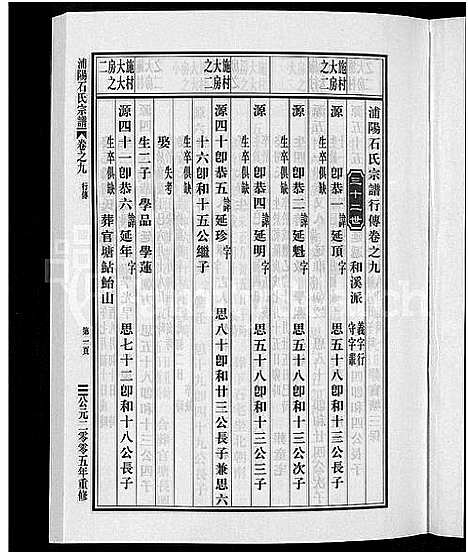 浦陽石氏宗譜行傳卷之九
三十二世 和溪派 義字行
守字叢
施村大房之二
源 四十即恭一 諱 延頂 字 思五十八即和十三公長子
生卒俱缺
源 即恭二 諱 延魁 字 思五十八即和十三公次子
生卒俱缺
源 即恭四 諱 延明 字 思五十八即和十三公三子
生卒俱缺
施村大大房之二
源四十即恭五 諱 延珍 字 思八十即和廿三公長子兼思六
十六即和十五公繼子
生卒俱缺
娶 失考
生二子 學品 學蓮
源四十一即恭六 諱 延年 字 思七十二即和十八公長子
生卒俱缺 葬官塘鮎鮐山
浦陽石氏宗譜 卷之九 行傳
第一頁
公元二零零五年重修